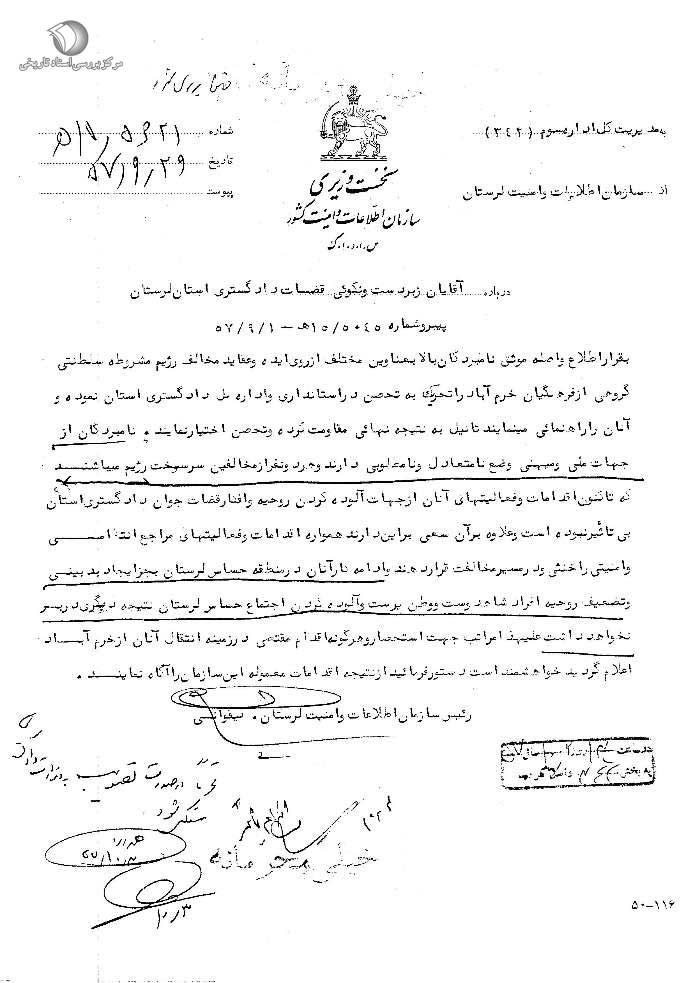 مرکز بررسی اسناد تاریخی
خیلی محرمانه
بمدیریت کل اداره سوم (۳۴۲)
شماره
تاریخ ۵۷/۹/۲۹
پیوست
از سازمان اطلاعات وامنیت لرستان
نخست وزیری
سازمان اطلاعات و امنیت کشور
س.ا.و.ا.ک
درباره آقایان زبردست ونکوئی قضات دادگستری استان لرستان
پیروشماره ۱۵/۵۰۴۵ه‍ـ - ۵۷/۹/۱
بقراراطلاع واصله موثق نامبردگان بالا بعناوین مختلف ازروی ایده وعقاید مخالف رژیم مشروطه سلطنتی
گروهی ازفرهنگیان خرم آباد راتحریک به تحصن دراستانداری واداره کل دادگستری استان نموده و
آنان راراهنمائی مینمایند تانیل به نتیجه نهائی مقاومت کرده وتحصن اختیارنمایند . نامبردگان از
جهات ملی ومیهنی وضع نامتعادل ونامطلوبی دارند وجزء ونفرازمخالفین سرسخت رژیم میباشند
که تاکنون اقدامات وفعالیتهای آنان ازجهات آلوده کردن روحیه وافکارقضات جوان دادگستری استان
بی تاثیرنبوده است وعلاوه برآن سعی براین دارند همواره اقدامات وفعالیتهای مراجع انتظامی
وامنیتی راخنثی ودرمسیرمخالفت قراردهند وادامه کارآنان درمنطقه حساس لرستان بجزایجاد بدبینی
وتضعیف روحیه افراد شاهدوست ووطن پرست وآلوده کردن اجتماع حساس لرستان نتیجه دیگری دربر
نخواهد داشت علیهذا مراتب جهت استحضاروهرگونه اقدام مقتضی درزمینه انتقال آنان ازخرم آباد
اعلام گردید خواهشمند است دستورفرمائید ازنتیجه اقدامات معموله این سازمان راآگاه نمایند .
رئیس سازمان اطلاعات وامنیت لرستان .
در صورت تصویب به وزارت دادگستری
منعکس شود
خیلی محرمانه
۱۰/۳
۵۰-۱۱۶